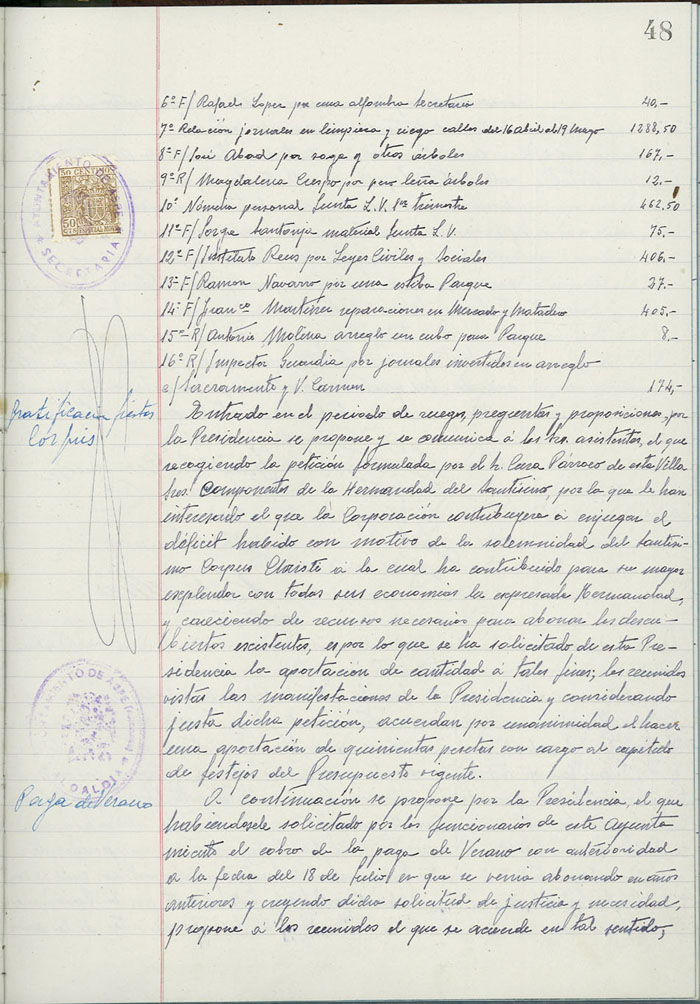 48
6º F/ Rafael Lopez por una alfombra Secretaria 40,-
7º Relación jornales en limpieza y riego calles del 16 Abril al 19 Mayo 1288,50
8º F/ José Abad por soga y otros árboles 167,-
9º R/ Magdalena Crespo por peso leña árboles 12.-
10º Nómina personal Junta L.V. 1er trimestre 462,50
11º F/ Jorge Santonja material Junta L.V. 75.-
12º F/ Instituto Reus por Leyes Civiles y Sociales 406.-
13º F/ Ramon Navarro por una estiba Parque 27.-
14º F/ Franco Montesser reparaciones en Mercado y Matadero 405.-
15º R/ Antonio Molina arreglo un cubo para Parque 8.-
16º R/ Inspector Guardia por jornales invertidos en arreglo
c/ Sacramento y V. Carmen 174,-
AYUNTAMIENTO DE ASPE
SECRETARIA
50 CENTIMOS
50 CTS
ESPECIAL MOVIL
Gratificacion fiestas
Corpus
Entrado en el periodo de ruegos, preguntas y proposiciones, por
la Presidencia se propone y se comunica á los Srs. asistentes, el que
recogiendo la petición formulada por el Sr. Cura Párroco de esta Villa
Sres. Componentes de la Hermandad del Santísimo, por la que le han
interesado el que la Corporación contribuyera á enjugar el
déficit habido con motivo de la solemnidad del Santísi-
mo Corpus Christi á la cual ha contribuido para su mayor
explendor con todas sus economias la expresada Hermandad,
y careciendo de recursos necesarios para abonar los descu-
biertos existentes, es por lo que se ha solicitado de esta Pre-
sidencia la aportación de cantidad á tales fines; los reunidos
vistas las manifestaciones de la Presidencia y considerando
justa dicha petición, acuerdan por unanimidad el hacer
una aportación de quinientas pesetas con cargo al capítulo
de festejos del Presupuesto vigente.
AYUNTAMIENTO DE ASPE
ALCALDIA
Paga de Verano
A continuación se propone por la Presidencia, el que
habiendosele solicitado por los funcionarios de este Ayunta
miento el cobro de la paga de Verano con anterioridad
a la fecha del 18 de Julio en que se venia abonando en años
anteriores y creyendo dicha solicitud de justicia y necesidad,
propone á los reunidos el que se acuerde en tal sentido;